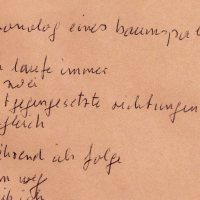 monolog eines baumspal
laufe immer
zwei
tgegengesetzte richtungen
gleich
ährend als folge
n weg